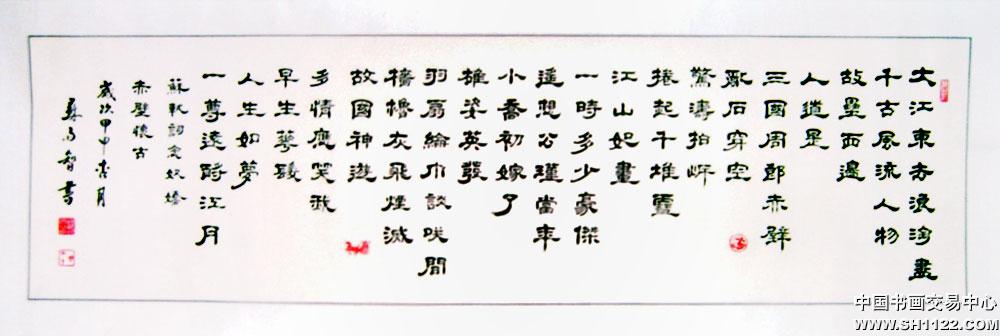 大江東去浪淘盡
千古風流人物
故壘西邊
人道是
三國周郎赤壁
亂石穿空
驚濤拍岸
捲起千堆雪
江山如畫
一時多少豪傑
遙想公瑾當年
小喬初嫁了
雄姿英發
羽扇綸巾談咲間
檣櫓灰飛煙滅
故國神遊
多情應笑我
早生華髮
人生如夢
一尊還酹江月
蘇軾詞念奴嬌
赤壁懷古
歲次甲申月
智書
中国书画交易中心
www.SH1122.com